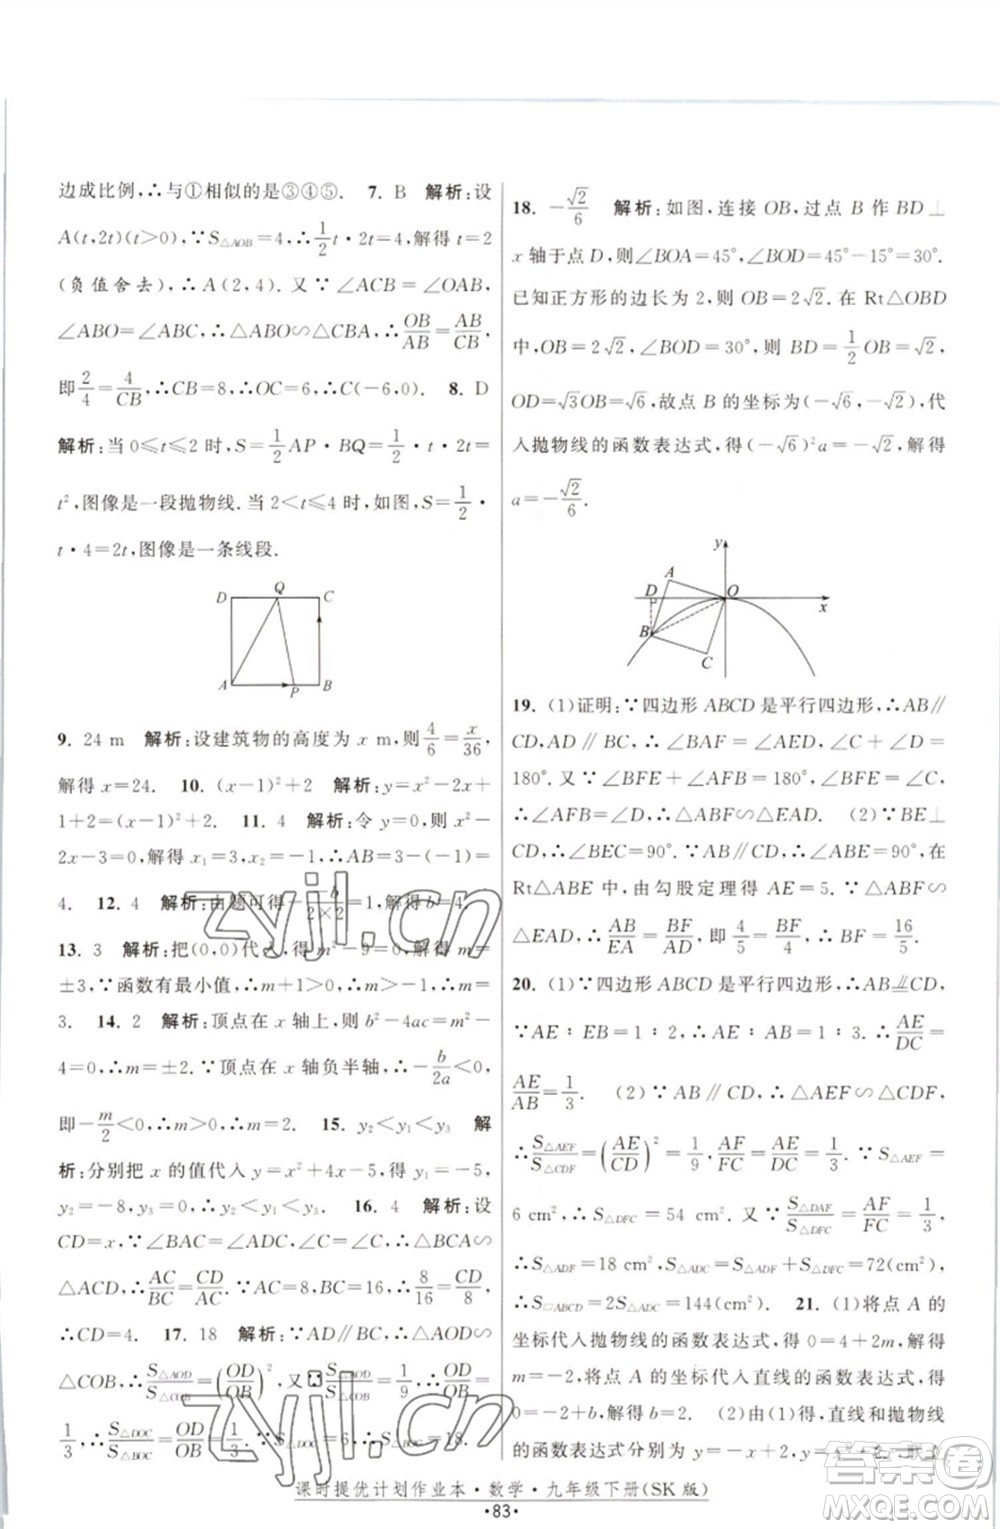 边成比例,∴与①相似的是③④⑤. 7. B 解析:设
A(t,2t)(t>0),∵S△AOB=4,∴1/2 t·2t=4,解得 t=2
(负值舍去),∴A(2,4). 又∵∠ACB=∠OAB,
∠ABO=∠ABC,∴△ABO∽△CBA,∴OB/AB=AB/CB,
即2/4=4/CB,∴CB=8,∴OC=6,∴C(-6,0). 8. D
解析:当 0≤t≤2 时,S=1/2 AP·BQ=1/2·t·2t=
t²,图像是一段抛物线.当 2<t≤4 时,S=1/2·
t·4=2t,图像是一条线段.
D Q C
A P B
9. 24 m 解析:设建筑物的高度为 x m,则4/6=x/36,
解得 x=24. 10. (x-1)²+2 解析:x²-2x+
1+2=(x-1)²+2. 11. 4 解析:令 y=0,则 x²-
2x-3=0,解得 x₁=3,x₂=-1,∴AB=3-(-1)=
4. 12. 4 解析:由题可得-(-b)/(2×2)=1,解得 b=4.
13. 3 解析:把(0,0)代入,得 m²-9=0,解得 m=
±3,∵函数有最小值,∴m+1>0,m>-1,∴m=
3. 14. 2 解析:顶点在 x 轴上,则 b²-4ac=m²-
4=0,∴m=±2.∵顶点在 x 轴负半轴,∴-b/2a<0,
即-m/2<0,∴m>0,∴m=2. 15. y₂<y₁<y₃ 解
析:分别把 x 的值代入 y=x²+4x-5,得 y₁=-5,
y₂=-8,y₃=0,∴y₂<y₁<y₃. 16. 4 解析:设
CD=x,∵∠BAC=∠ADC,∠C=∠C,∴△BCA∽
△ACD,∴AC/BC=CD/AC. ∵AC=8,BC=16,∴8/16=x/8,
∴CD=4. 17. 18 解析:∵AD∥BC,∴△AOD∽
△COB,∴S△AOD/S△COB=(OD/OB)², 又∵S△AOD/S△COB=1/9,∴OD/OB=
1/3,∴S△DOC/S△BOC=OD/OB=1/3. ∵S△DOC=6,∴S△BOC=18.
18. -√2/6 解析:如图,连接 OB,过点 B 作 BD⊥
x 轴于点 D,则∠BOA=45°,∠BOD=45°-15°=30°.
已知正方形的边长为 2,则 OB=2√2. 在 Rt△OBD
中,OB=2√2,∠BOD=30°,则 BD=1/2 OB=√2,
OD=√3OB=√6,故点 B 的坐标为(-√6,-√2),代
入抛物线的函数表达式,得(-√6)²a=-√2,解得
a=-√2/6.
y
A
D O
x
B
C
19. (1)证明:∵四边形 ABCD 是平行四边形,∴AB∥
CD,AD∥BC,∴∠BAF=∠AED,∠C+∠D=
180°. 又∵∠BFE+∠AFB=180°,∠BFE=∠C,
∴∠AFB=∠D,∴△ABF∽△EAD. (2)∵BE⊥
CD,∴∠BEC=90°. ∵AB∥CD,∴∠ABE=90°,在
Rt△ABE 中,由勾股定理得 AE=5. ∵△ABF∽
△EAD,∴AB/EA=BF/AD,即 4/5=BF/4,∴BF=16/5.
20. (1)∵四边形 ABCD 是平行四边形,∴AB⫽CD,
∵AE∶EB=1∶2,∴AE∶AB=1∶3. ∴AE/DC=
AE/AB=1/3. (2)∵AB∥CD,∴△AEF∽△CDF,
∴S△AEF/S△CDF=(AE/CD)²=1/9,AF/FC=AE/DC=1/3. ∵S△AEF=
6 cm²,∴S△DFC=54 cm². 又∵S△DAF/S△DFC=AF/FC=1/3,
∴S△ADF=18 cm²,∴S△ADF+S△DFC=72(cm²),
∴S□ABCD=2S△ADC=144(cm²). 21. (1)将点 A 的
坐标代入抛物线的函数表达式,得 0=4+2m,解得
m=-2,将点 A 的坐标代入直线的函数表达式,得
0=-2+b,解得 b=2. (2)由(1)得,直线和抛物线
的函数表达式分别为 y=-x+2,y=x²-2x,联立
课时提优计划作业本·数学·九年级下册(SK 版)
·83·
zyjl.cn
zyjl.cn
作业精灵
答案圈
MXQE.COM